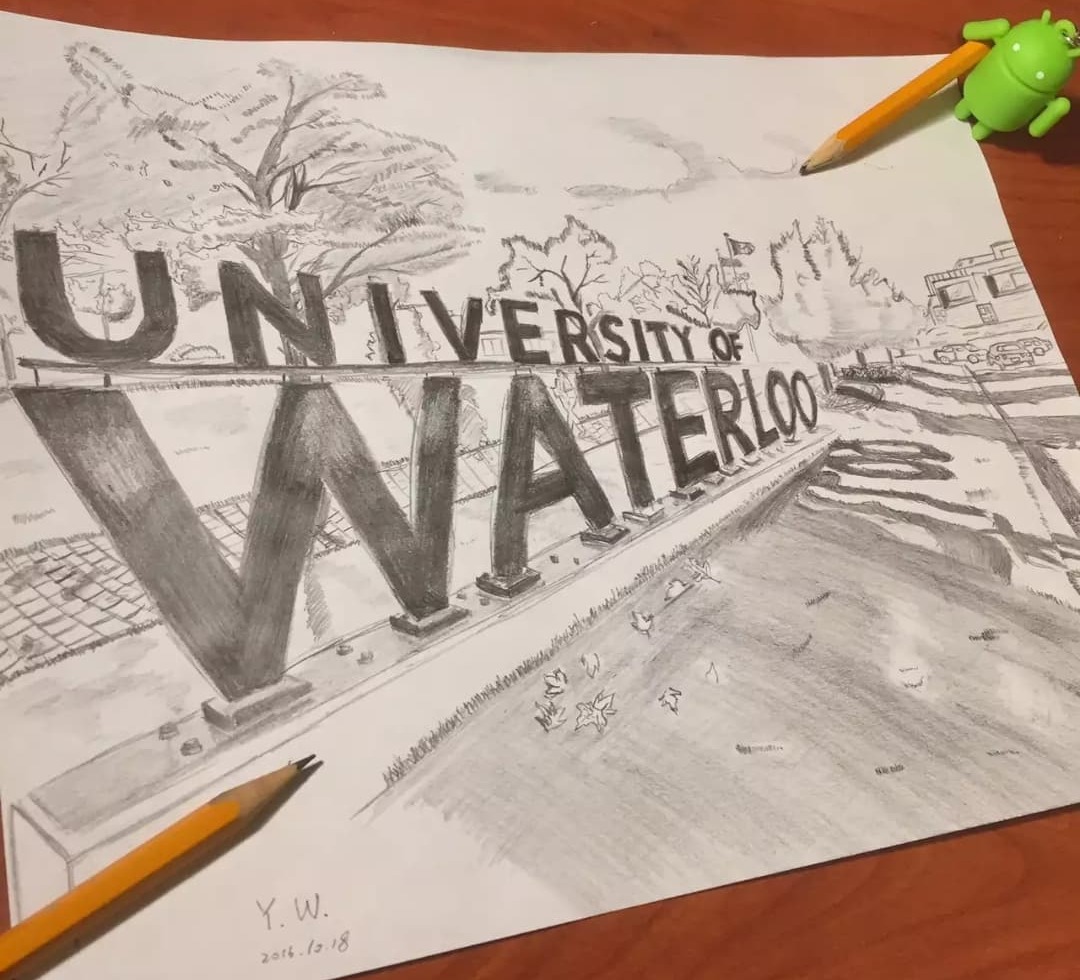 UNIVERSITY OF
WATERLOO
Y. W.
2016.12.18